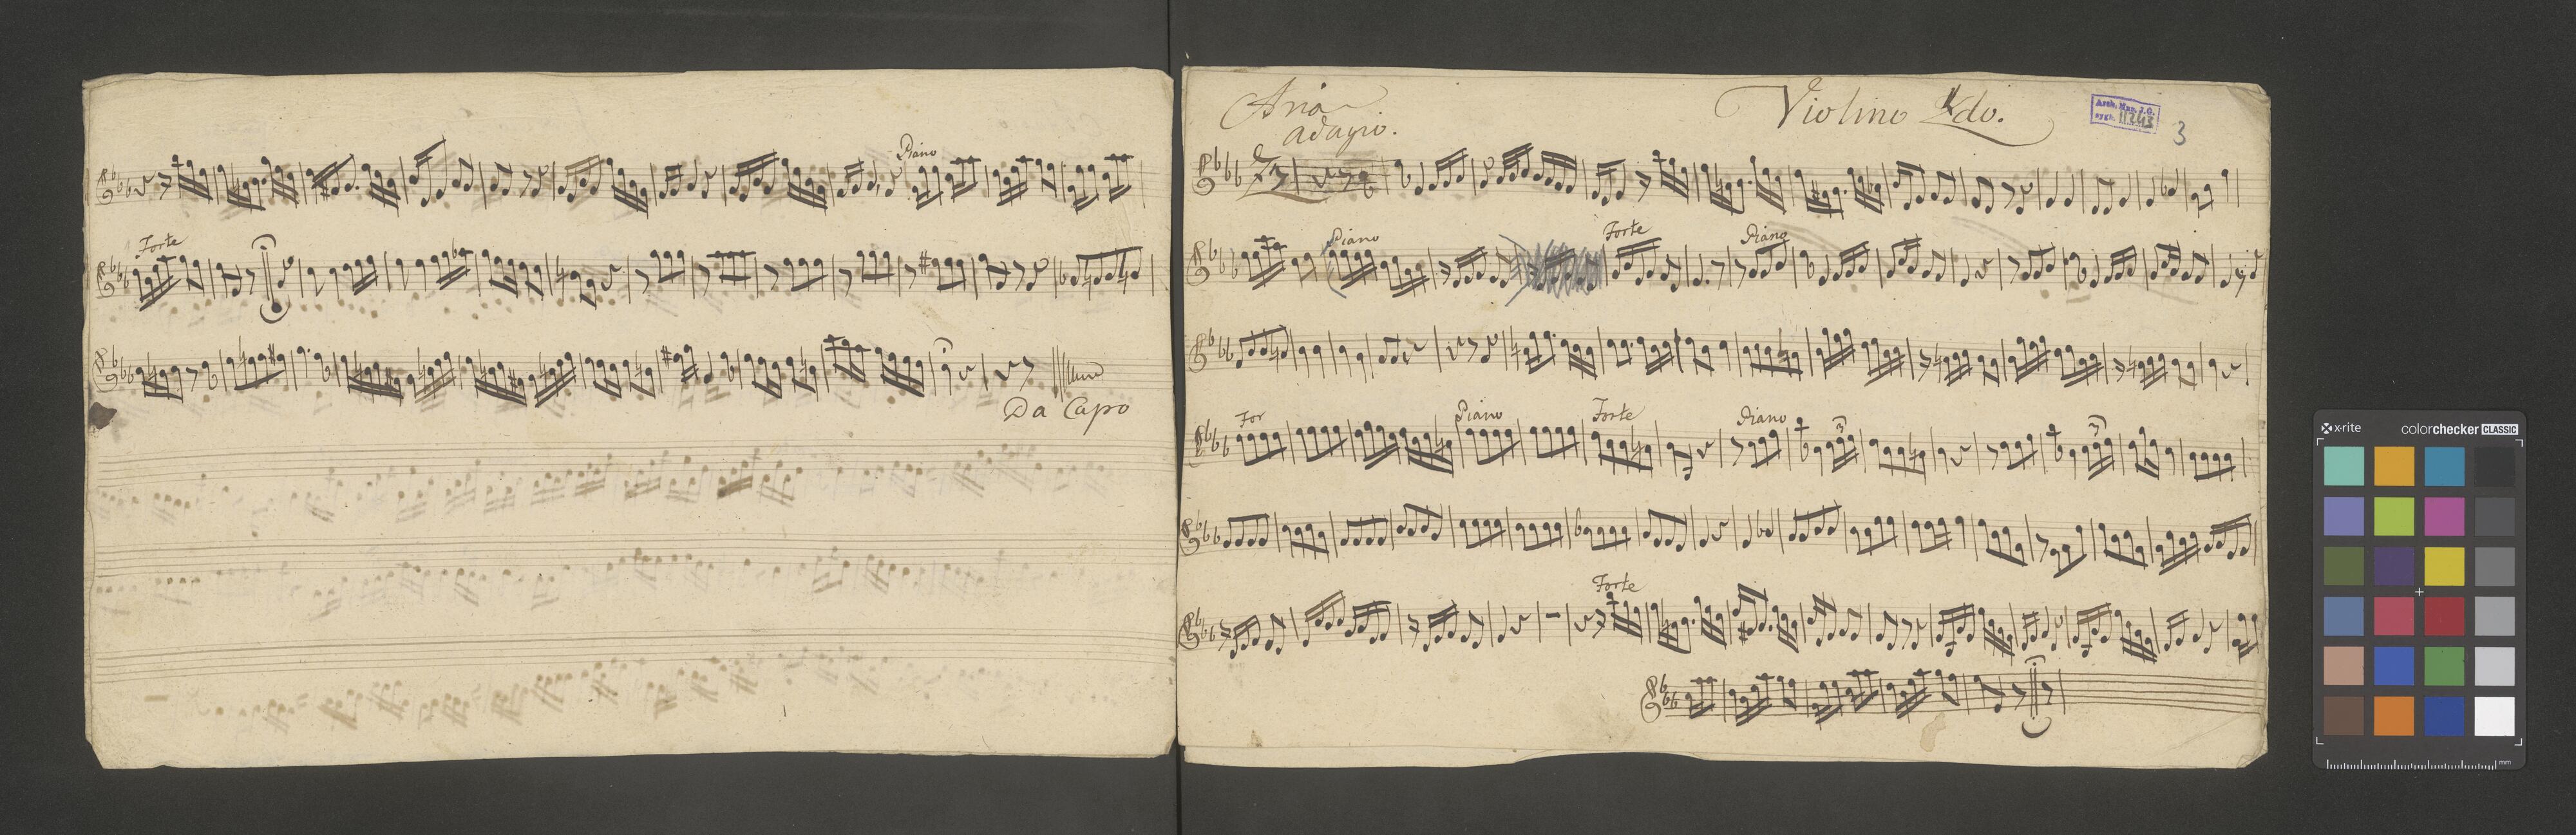 Piano
Forte
Da Capo
Aria
adagio.
Violino 2do.
Arch. Mus. J.G.
sygn. II 243
3
Piano
Forte
Piano
For
Piano
Forte
Piano
3
3
Forte
x-rite
colorchecker CLASSIC
mm